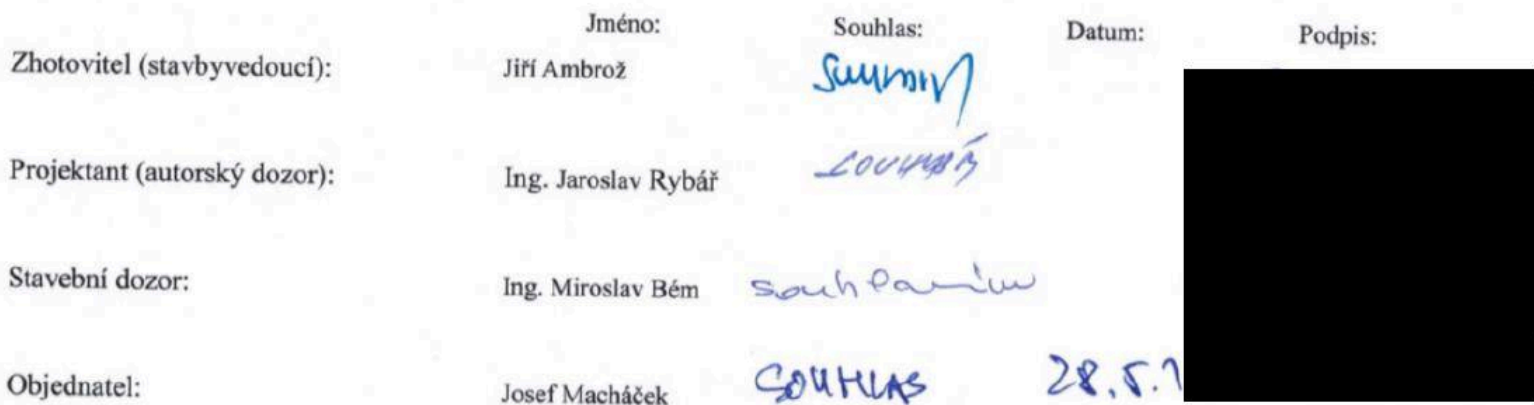 Jméno: Souhlas: Datum: Podpis:
Zhotovitel (stavbyvedoucí): Jiří Ambrož
Projektant (autorský dozor): Ing. Jaroslav Rybář
Stavební dozor: Ing. Miroslav Bém souhlasím
Objednatel: Josef Macháček SOUHLAS 28.5.1